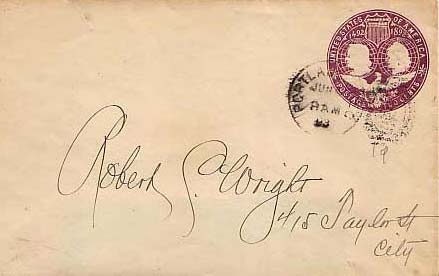 UNITED STATES OF AMERICA
1492 1892
POSTAGE TWO CENTS
PORTLA
JUN
8 AM
93
Robert S. Wright
415 Taylor St
City